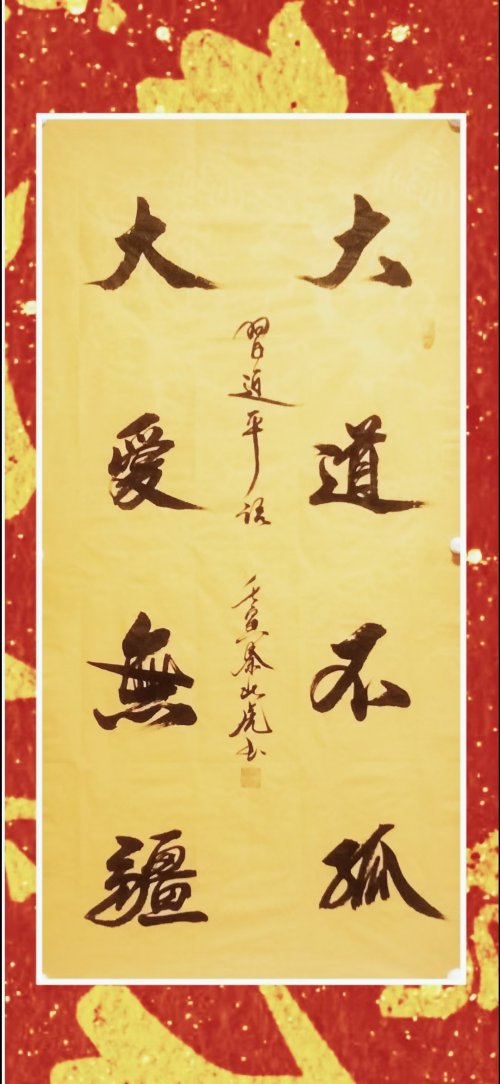 大道不孤
大愛無疆
習近平語
壬寅秦北虎书